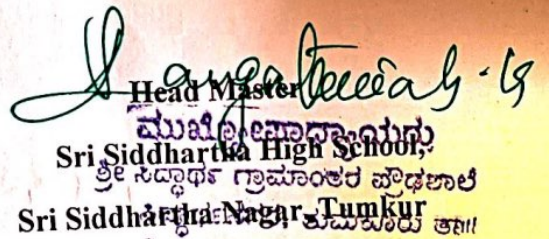 Head Master
ಮುಖ್ಯೋಪಾಧ್ಯಾಯರು
Sri Siddhartha High School,
ಶ್ರೀ ಸಿದ್ಧಾರ್ಥ ಗ್ರಾಮಾಂತರ ಪ್ರೌಢಶಾಲೆ
Sri Siddhartha Nagar, Tumkur
ತುಮಕೂರು ತಾ॥